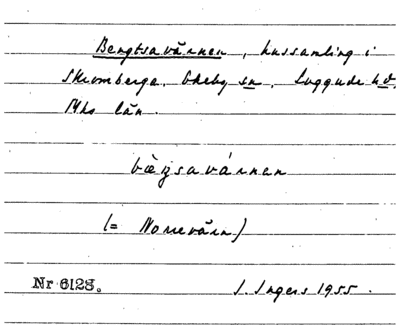 Bengtsavärnen, hussamling i
Skromberga. Ekeby sn, Luggude hd.
Mhs län.
bèŋsavárnan
(= Norrevärn)
Nr 6128.
I. Ingers 1955.